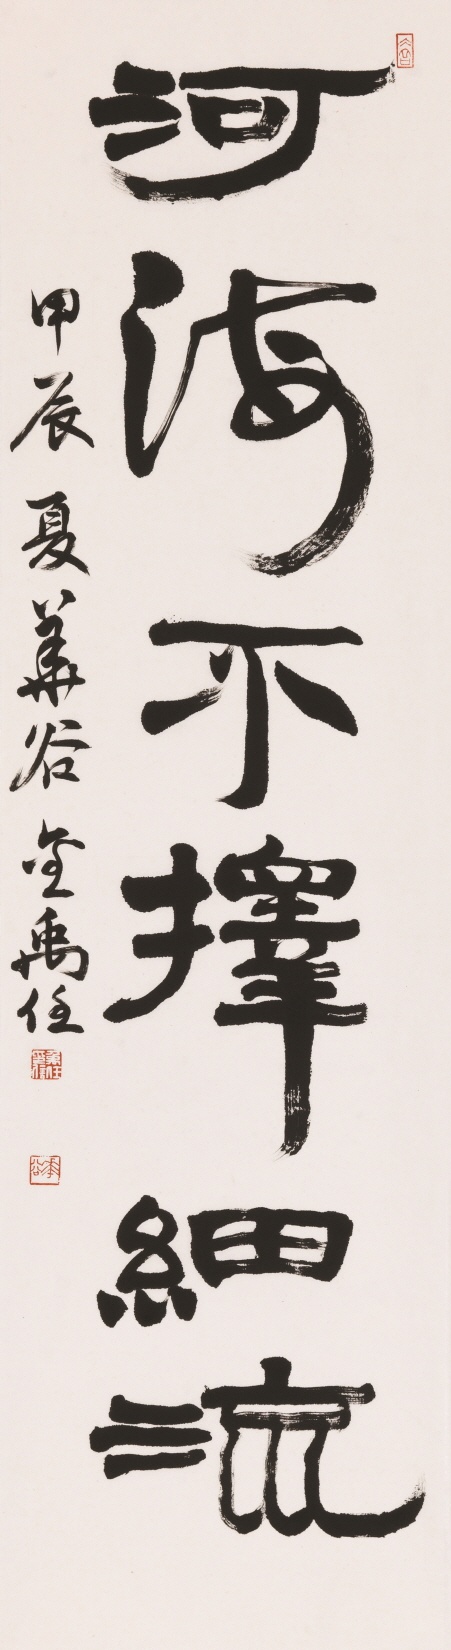 河海不擇細流
甲辰夏華谷金禹任